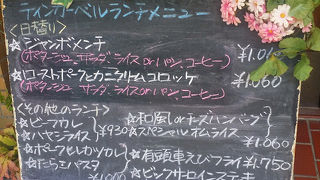 ティンカーベルランチメニュー
<日替り>
★ジャンボメンチ
(ポタージュ、サラダ、ライスorパン、コーヒー) ¥1,0
★ローストポークとカニクリームコロッケ
(ポタージュ、サラダ、ライスorパン、コーヒー) ¥1,060
<その他のランチ>
★ビーフカレー
★ハヤシライス
★ポークヒレカツカレー
★たらこパスタ
¥930
★和風チーズハンバーグ
★スペシャルオムライス
¥1,060
★有頭車えびフライ ¥1,750
★ビックサーロインステーキ